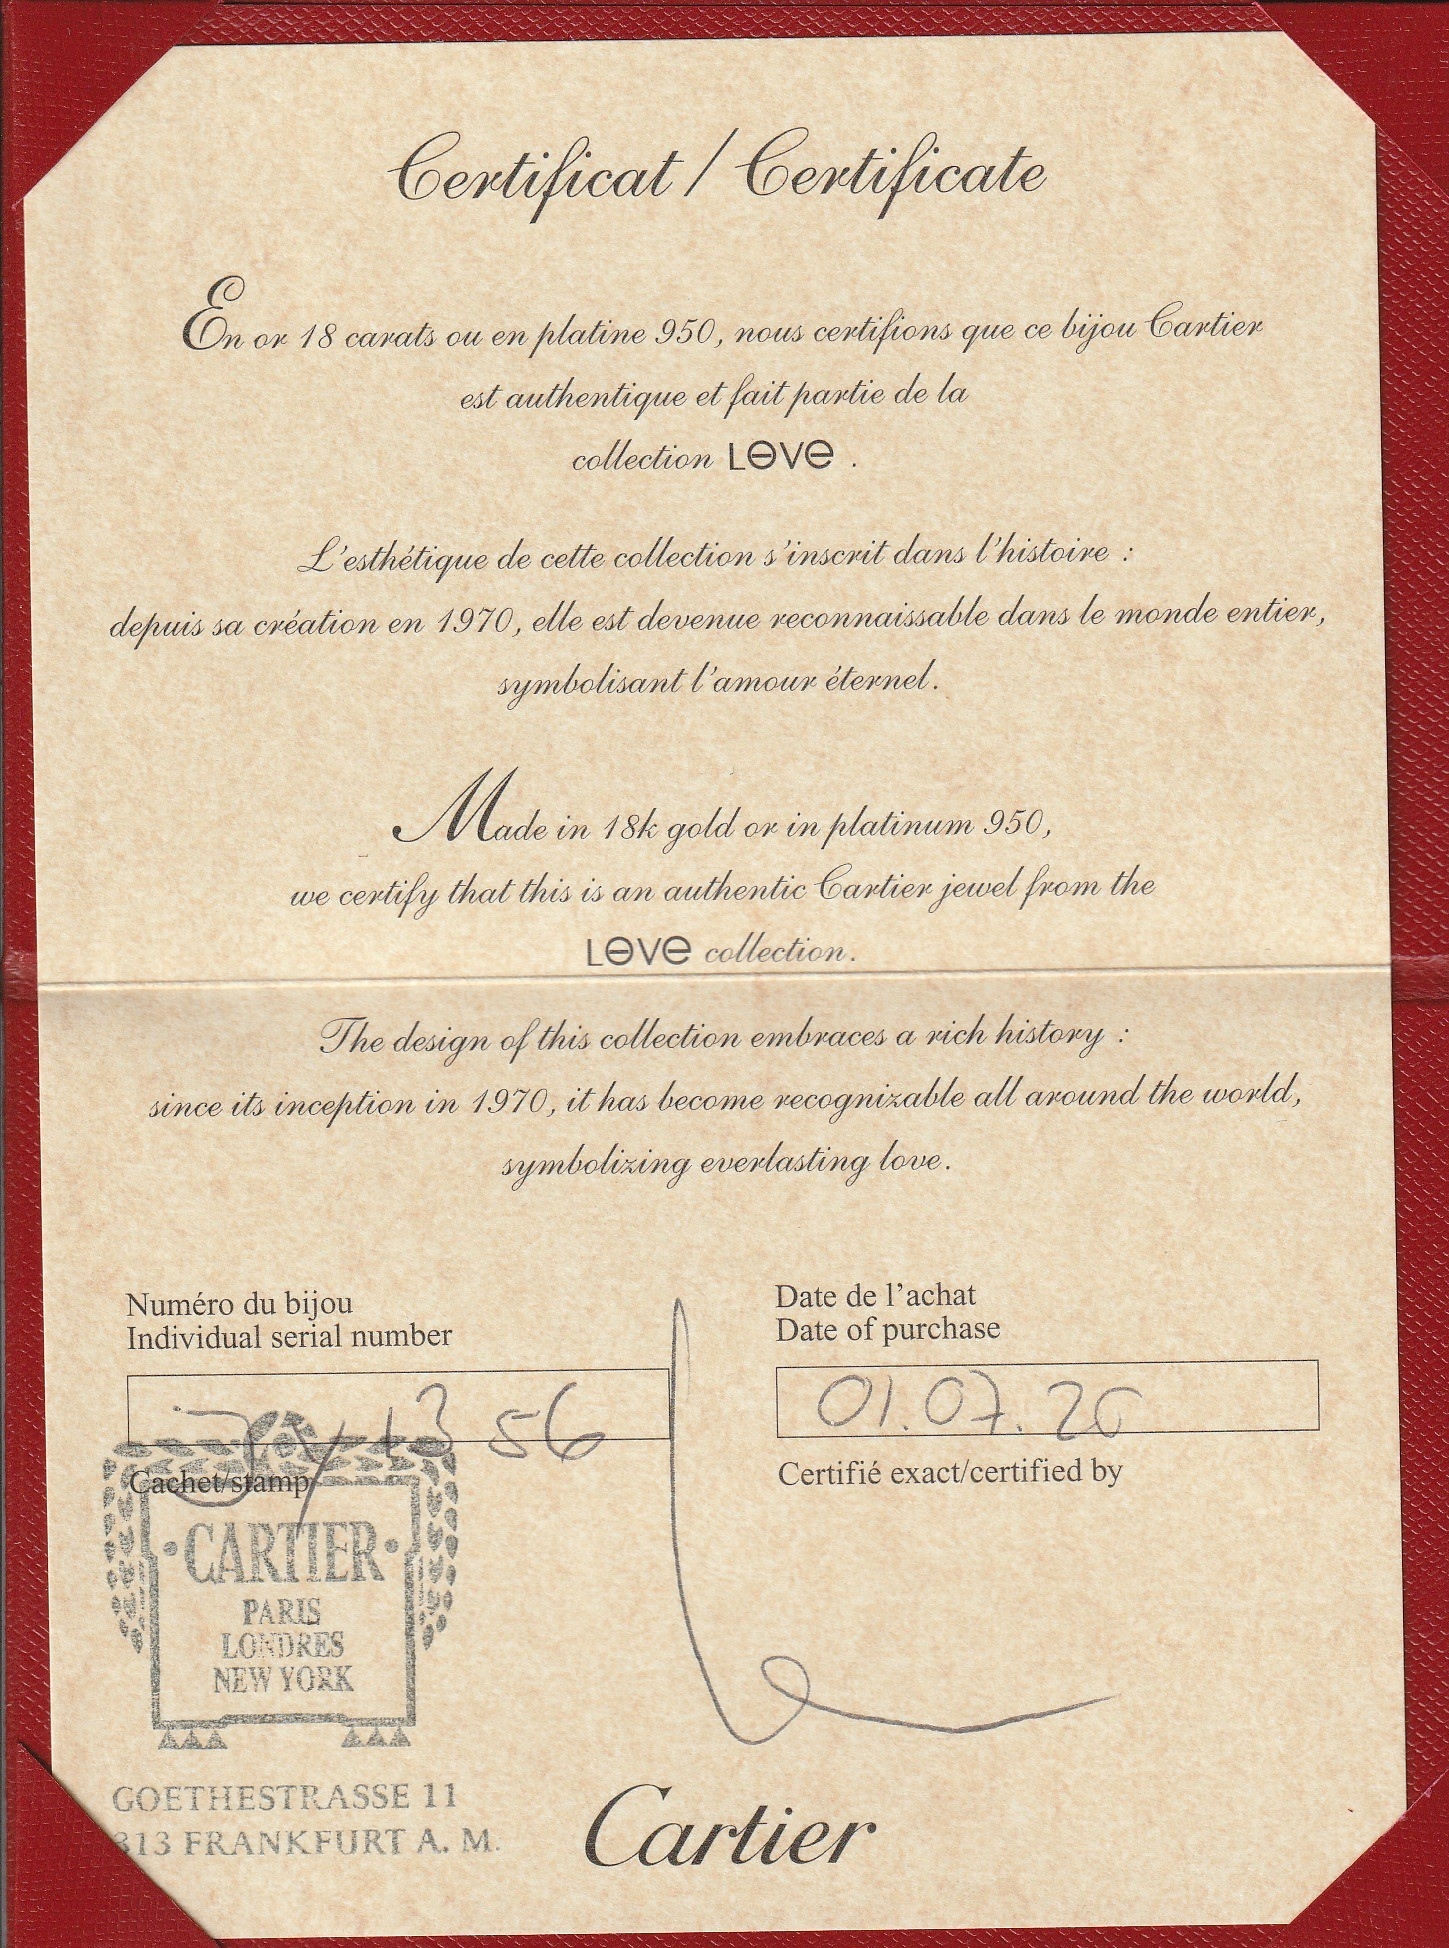 Certificat / Certificate
En or 18 carats ou en platine 950, nous certifions que ce bijou Cartier
est authentique et fait partie de la
collection LOVE .
L'esthétique de cette collection s'inscrit dans l'histoire :
depuis sa création en 1970, elle est devenue reconnaissable dans le monde entier,
symbolisant l'amour éternel.
Made in 18k gold or in platinum 950,
we certify that this is an authentic Cartier jewel from the
LOVE collection.
The design of this collection embraces a rich history :
since its inception in 1970, it has become recognizable all around the world,
symbolizing everlasting love.
Numéro du bijou
Individual serial number
56
Cachet/stamp
·CARTIER·
PARIS
LONDRES
NEW YORK
GOETHESTRASSE 11
313 FRANKFURT A. M.
Date de l'achat
Date of purchase
01.07.20
Certifié exact/certified by
Cartier